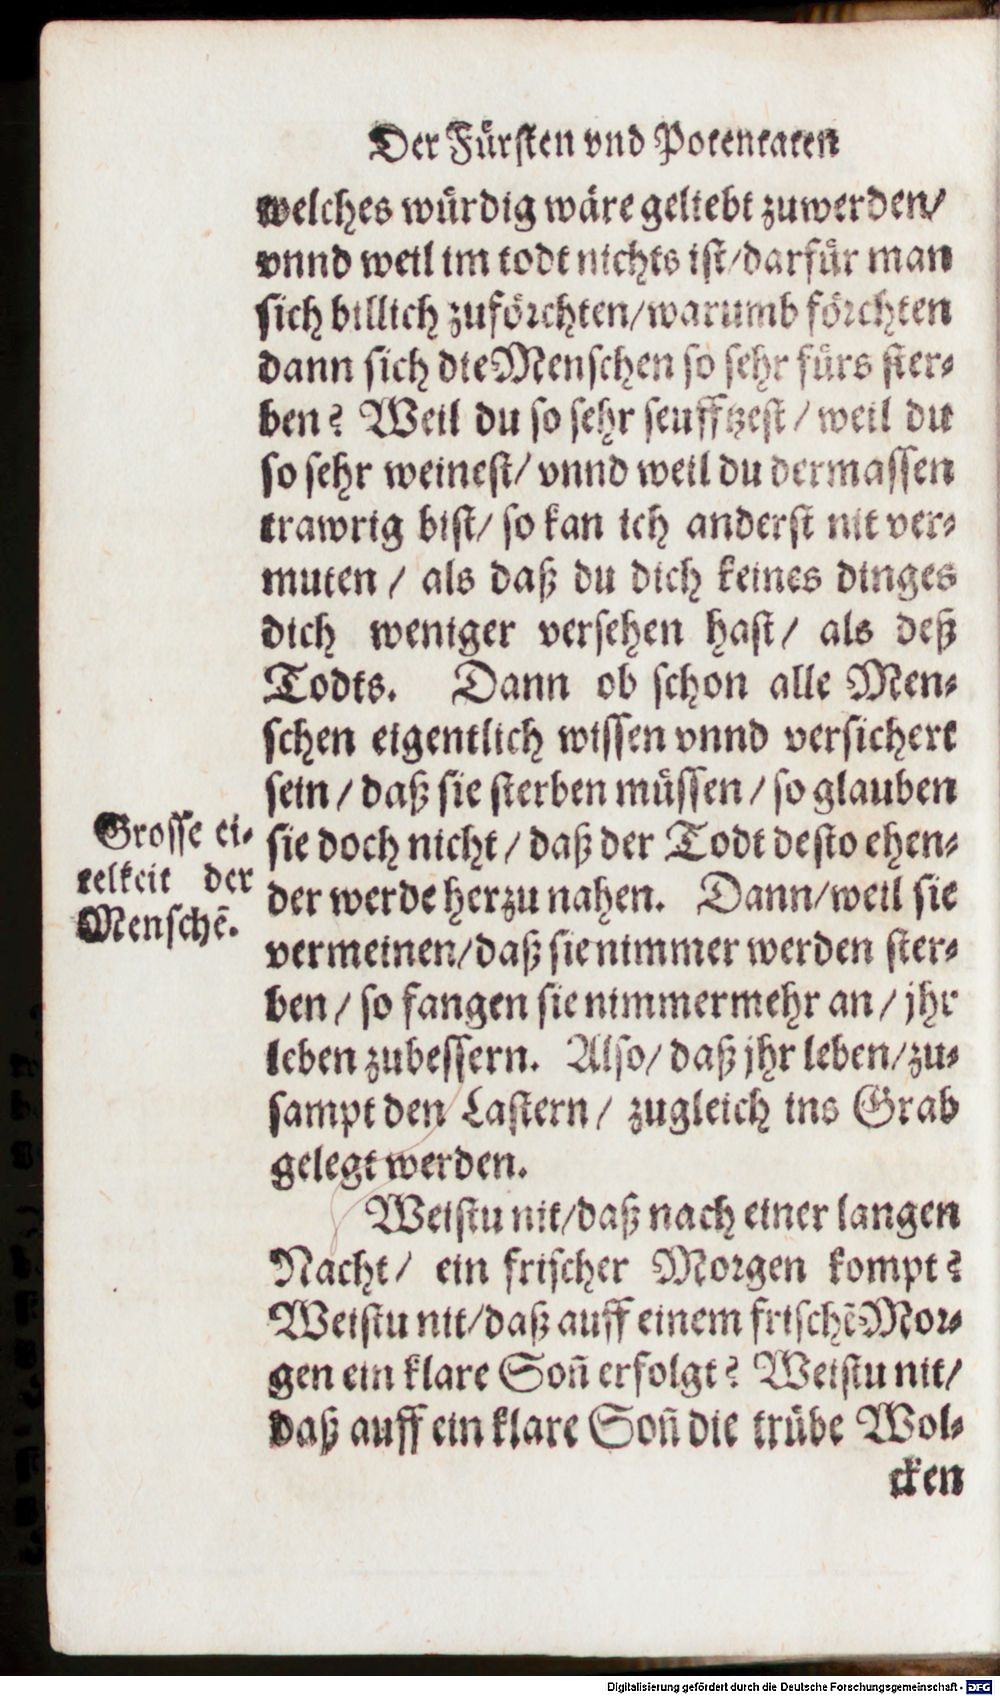 Der Fürsten vnd Potentaten
welches würdig wäre geliebt zuwerden/
vnnd weil im todt nichts ist/darfür man
sich billich zuförchten/warumb förchten
dann sich die Menschen so sehr fürs ster-
ben? Weil du so sehr seufftzest/ weil du
so sehr weinest/ vnnd weil du dermassen
trawrig bist/ so kan ich anderst nit ver-
muten / als daß du dich keines dinges
dich weniger versehen hast/ als deß
Todts. Dann ob schon alle Men-
schen eigentlich wissen vnnd versichert
sein / daß sie sterben müssen / so glauben
sie doch nicht / daß der Todt desto ehen-
der werde herzu nahen. Dann/weil sie
vermeinen/daß sie nimmer werden ster-
ben / so fangen sie nimmermehr an / jhr
leben zubessern. Also/ daß jhr leben/zu-
sampt den Lastern / zugleich ins Grab
gelegt werden.
Grosse ei-
telkeit der
Menschē.
Weistu nit/daß nach einer langen
Nacht/ ein frischer Morgen kompt?
Weistu nit/daß auff einem frischē Mor-
gen ein klare Soñ erfolgt? Weistu nit/
daß auff ein klare Soñ die trübe Wol-
cken
Digitalisierung gefördert durch die Deutsche Forschungsgemeinschaft - DFG